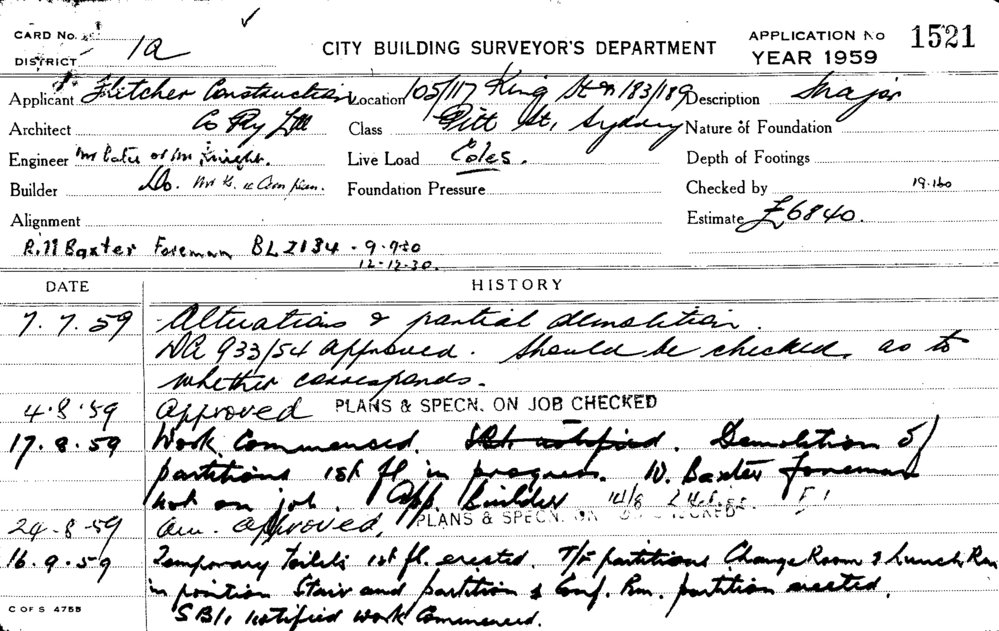 CARD No.
DISTRICT 1a
CITY BUILDING SURVEYOR'S DEPARTMENT
APPLICATION No 1521
YEAR 1959
Applicant Fletcher Construction Location 105/117 King St & 183/189 Description Major
Architect Co Pty Ltd Class Pitt St, Sydney Nature of Foundation
Engineer Live Load Coles. Depth of Footings
Builder Do. Foundation Pressure Checked by
Alignment Estimate £6840.
Baxter Foreman BL 2134 - 9-9-30
12-12-30.
DATE HISTORY
7.7.59 Alterations & partial demolition.
DA 933/54 approved. Should be checked as to
whether corresponds.
4.8.59 Approved PLANS & SPECN. ON JOB CHECKED
17.8.59 Work Commenced. Demolition of
partitions 1st fl in progress. W. Baxter Foreman
not on job. App. builder 14/8
24-8-59 Am. approved, PLANS & SPECN. ON JOB CHECKED
16.9.59 Temporary Toilets 1st fl. erected. T/F partitions Change Room & Lunch Rm
in position Stair and partition & Conf. Rm. partition erected.
notified work Commenced.
C OF S 4755